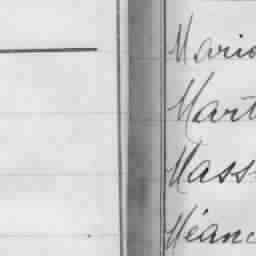 Mario
Mart
Mass
Méanc